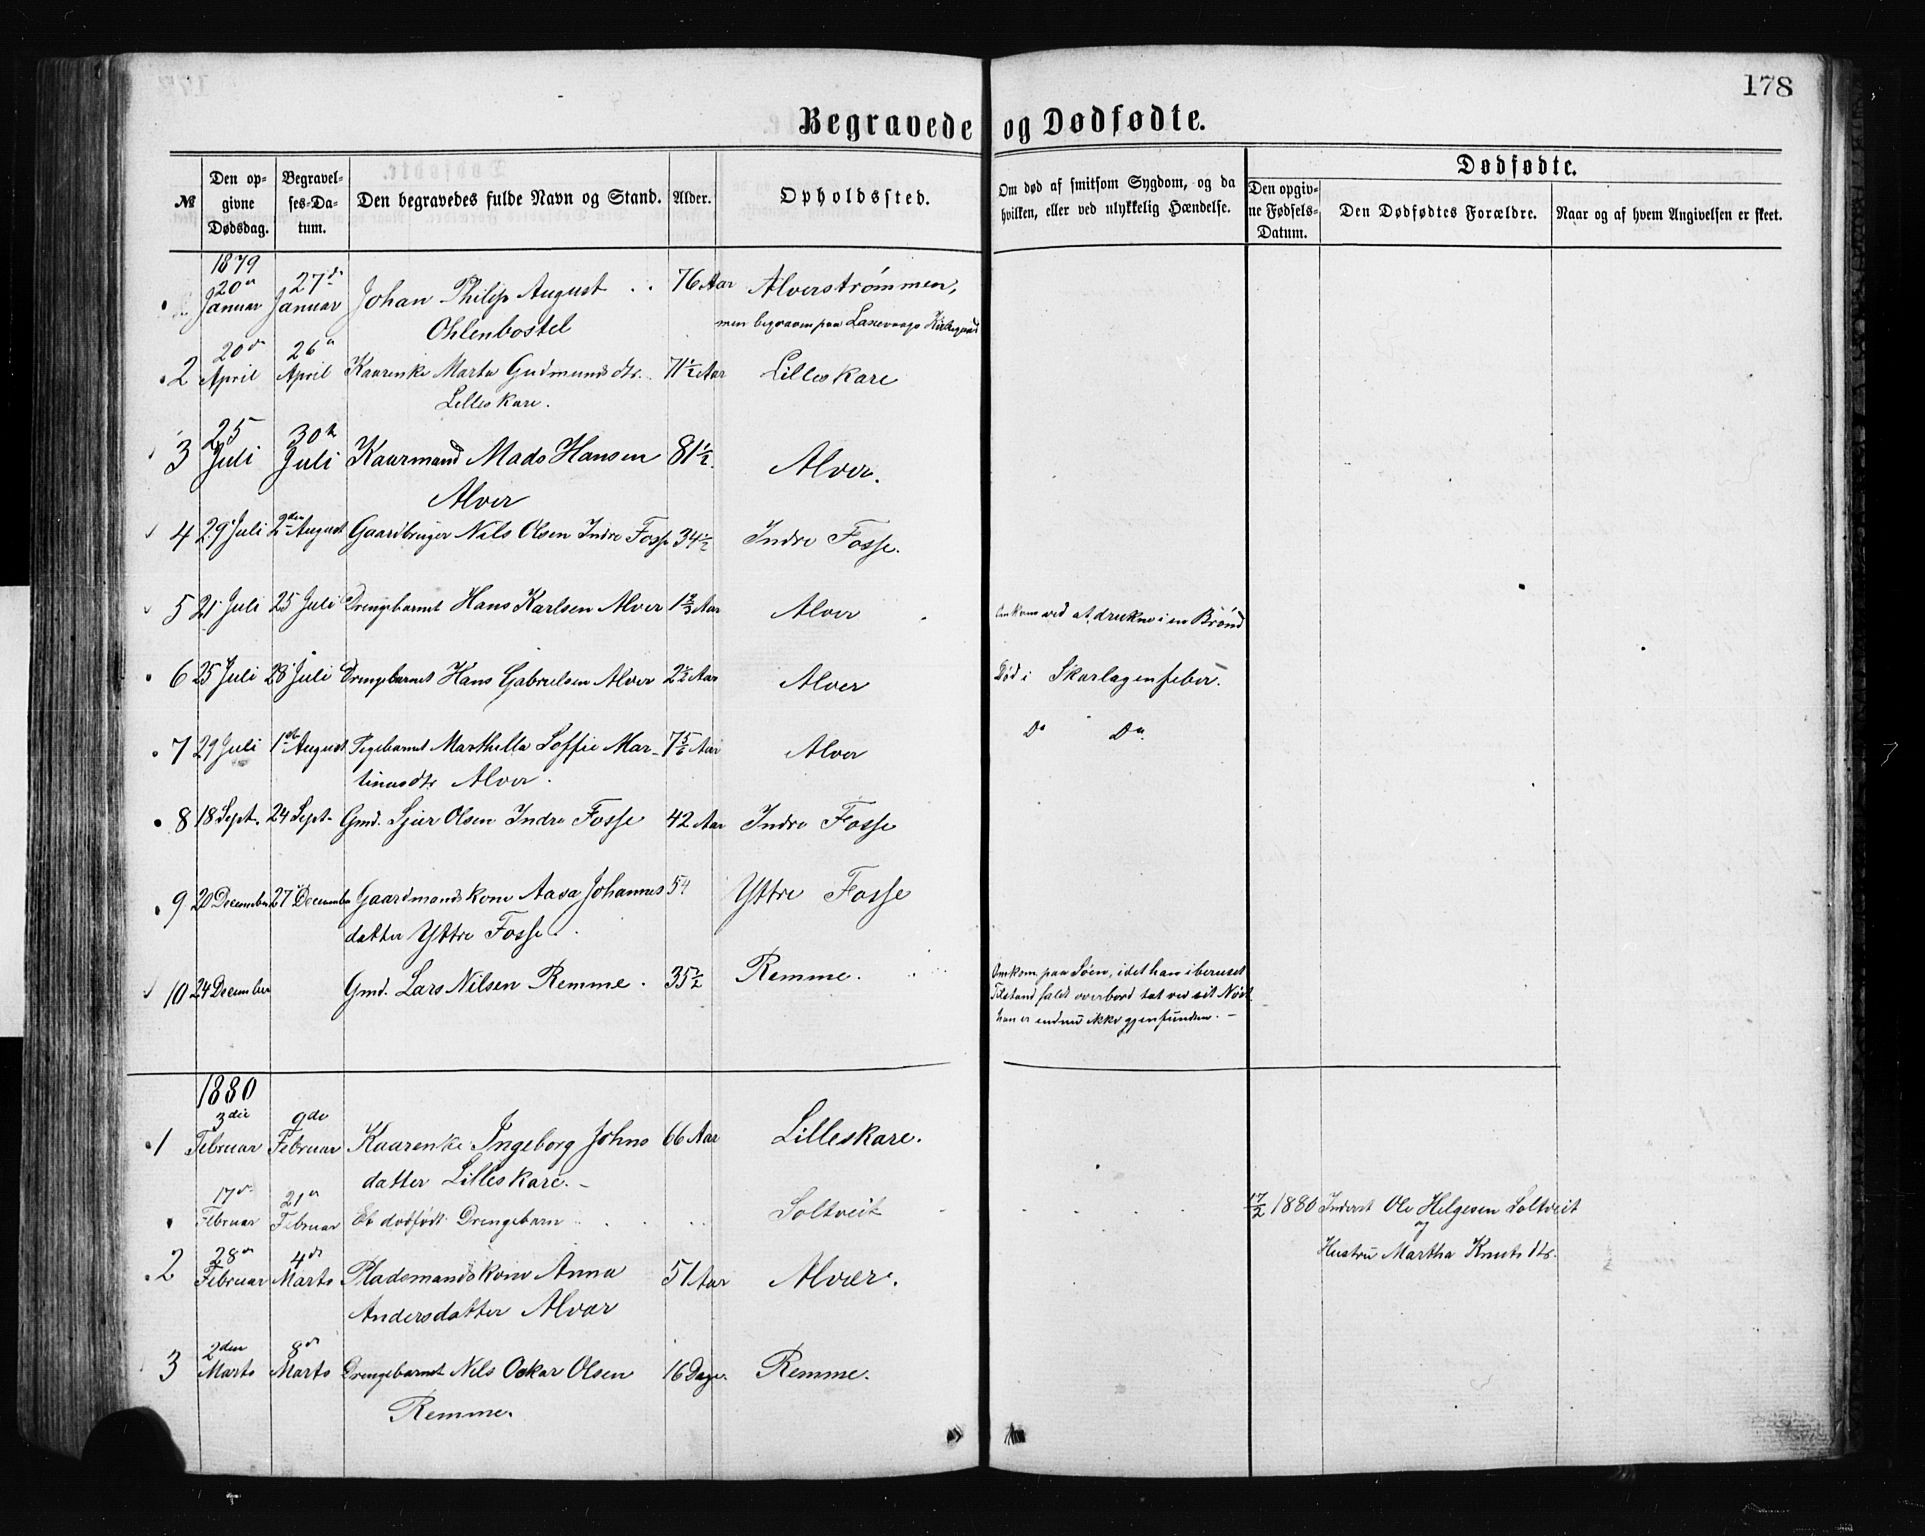 178
Begravede og Dødfødte.
№
Den opgivne Dødsdag.
Begravelses-Datum.
Den begravedes fulde Navn og Stand.
Alder.
Opholdssted.
Om død af smitsom Sygdom, og da hvilken, eller ved ulykkelig Hændelse.
Dødfødte.
Den opgivne Fødsels-Datum.
Den Dødfødtes Forældre.
Naar og af hvem Angivelsen er skeet.
1879
20de Januar 27de Januar Johan Philip August 76 Aar Alverstrømmen,
Ohlenbostel men begraven paa Laxevaags Kirkegaard
2 20de April 26de April Kaarenke Marta Gudmundsdtr. 71 1/2 Aar Lilleskare
Lilleskare.
3 25 Juli 30te Juli Kaarmand Mads Hansen 81 1/2 Alver.
Alver
4 29 Juli 2den August Gaardbruger Nils Olsen Indre Fosse 34 1/2 Indre Fosse.
5 21 Juli 25 Juli Drengebarnet Hans Karlsen Alver 1 2/3 Aar Alver Omkom ved at drukne i en Brønd
6 25 Juli 28 Juli Drengebarnet Hans Gabrielsen Alver 2 1/2 Aar Alver Død i Skarlagensfeber.
7 29 Juli 1ste August Pigebarnet Marthella Soffie Mar- 7 5/6 Aar Alver Do Do
tinusdtr Alver.
8 18 Sept. 24 Sept. Gmd. Sjur Olsen Indre Fosse 42 Aar Indre Fosse
9 20 December 27 December Gaardmandskone Aasa Johannes 54 Yttre Fosse
datter Yttre Fosse.
10 24 December Gmd. Lars Nilsen Remme. 35 1/2 Remme. Omkom paa Søen, idet han i beruset
Tilstand faldt overbord tæt ved sit Nøst
han er endnu ikke gjenfunden. —
1880
1 3die Februar 9de Februar Kaarenke Ingeborg Johns 66 Aar Lilleskare.
datter Lilleskare. —
17de Februar 21de Februar Et dødfødt Drengebarn Soltveit 17/2 1880 Inderst Ole Helgesen Soltveit
og
Hustru Martha Knutsdtr.
2 28de Februar 4de Marts Pladsmandskone Anna 51 Aar Alvær.
Andersdatter Alvær
3 2den Marts 8de Marts Drengebarnet Nils Oskar Olsen 16 Dage. Remme.
Remme.